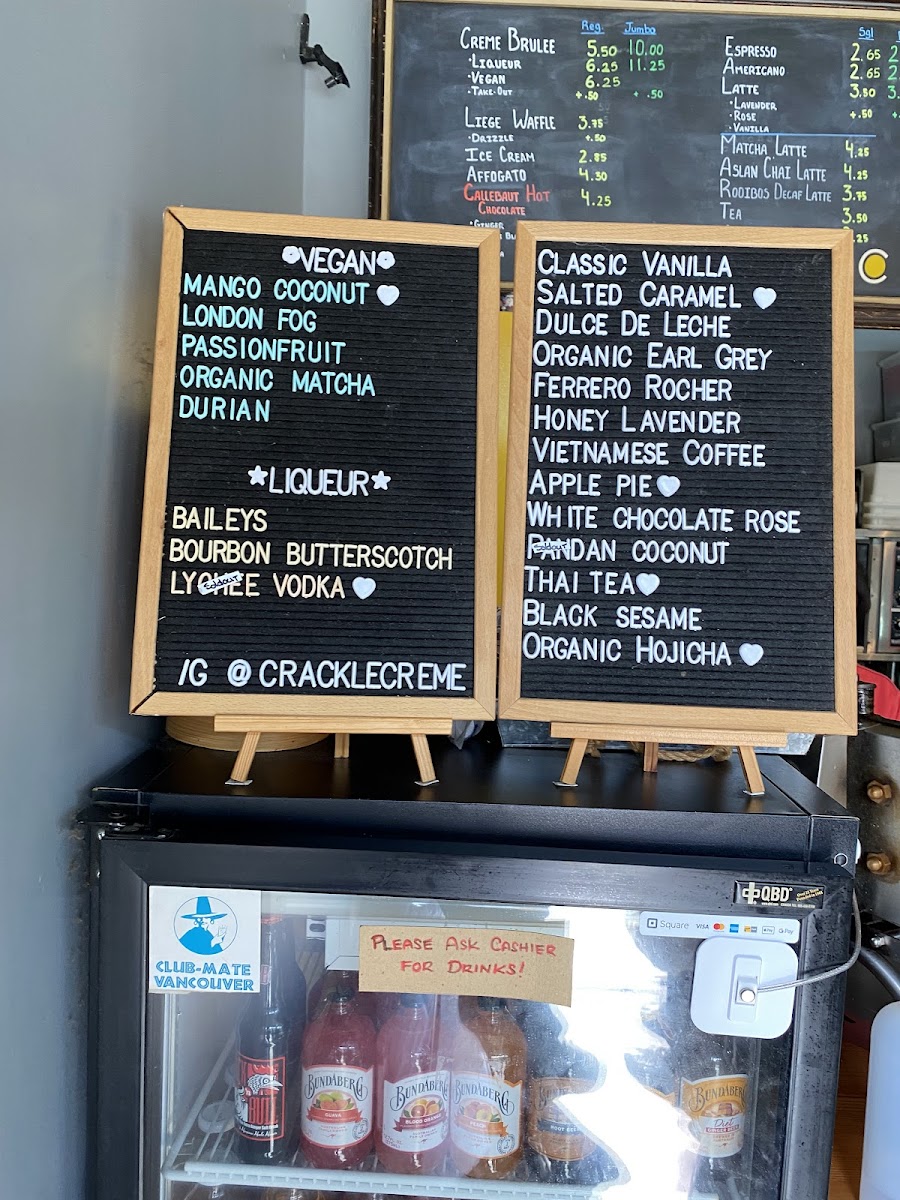 Reg. Jumbo
CREME BRULEE 5.50 10.00
• LIQUEUR 6.25 11.25
• VEGAN 6.25
• TAKE-OUT +.50 +.50
LIEGE WAFFLE 3.75
• DRIZZLE +.50
ICE CREAM 2.85
AFFOGATO 4.30
CALLEBAUT HOT CHOCOLATE 4.25
• GINGER
Sgl
ESPRESSO 2.65
AMERICANO 2.65
LATTE 3.50
• LAVENDER +.50
• ROSE
• VANILLA
MATCHA LATTE 4.25
ASLAN CHAI LATTE 4.25
ROOIBOS DECAF LATTE 3.75
TEA 3.50
VEGAN
MANGO COCONUT
LONDON FOG
PASSIONFRUIT
ORGANIC MATCHA
DURIAN
LIQUEUR
BAILEYS
BOURBON BUTTERSCOTCH
LYCHEE VODKA
Sold out
IG @CRACKLECREME
CLASSIC VANILLA
SALTED CARAMEL
DULCE DE LECHE
ORGANIC EARL GREY
FERRERO ROCHER
HONEY LAVENDER
VIETNAMESE COFFEE
APPLE PIE
WHITE CHOCOLATE ROSE
PANDAN COCONUT
Sold out
THAI TEA
BLACK SESAME
ORGANIC HOJICHA
QBD
CLUB-MATE
VANCOUVER
PLEASE ASK CASHIER
FOR DRINKS!
Square VISA
BUNDABERG
GUAVA
BUNDABERG
BLOOD ORANGE
BUNDABERG
PEACH
ROOT BEER
BUNDABERG
Diet
GINGER BEER